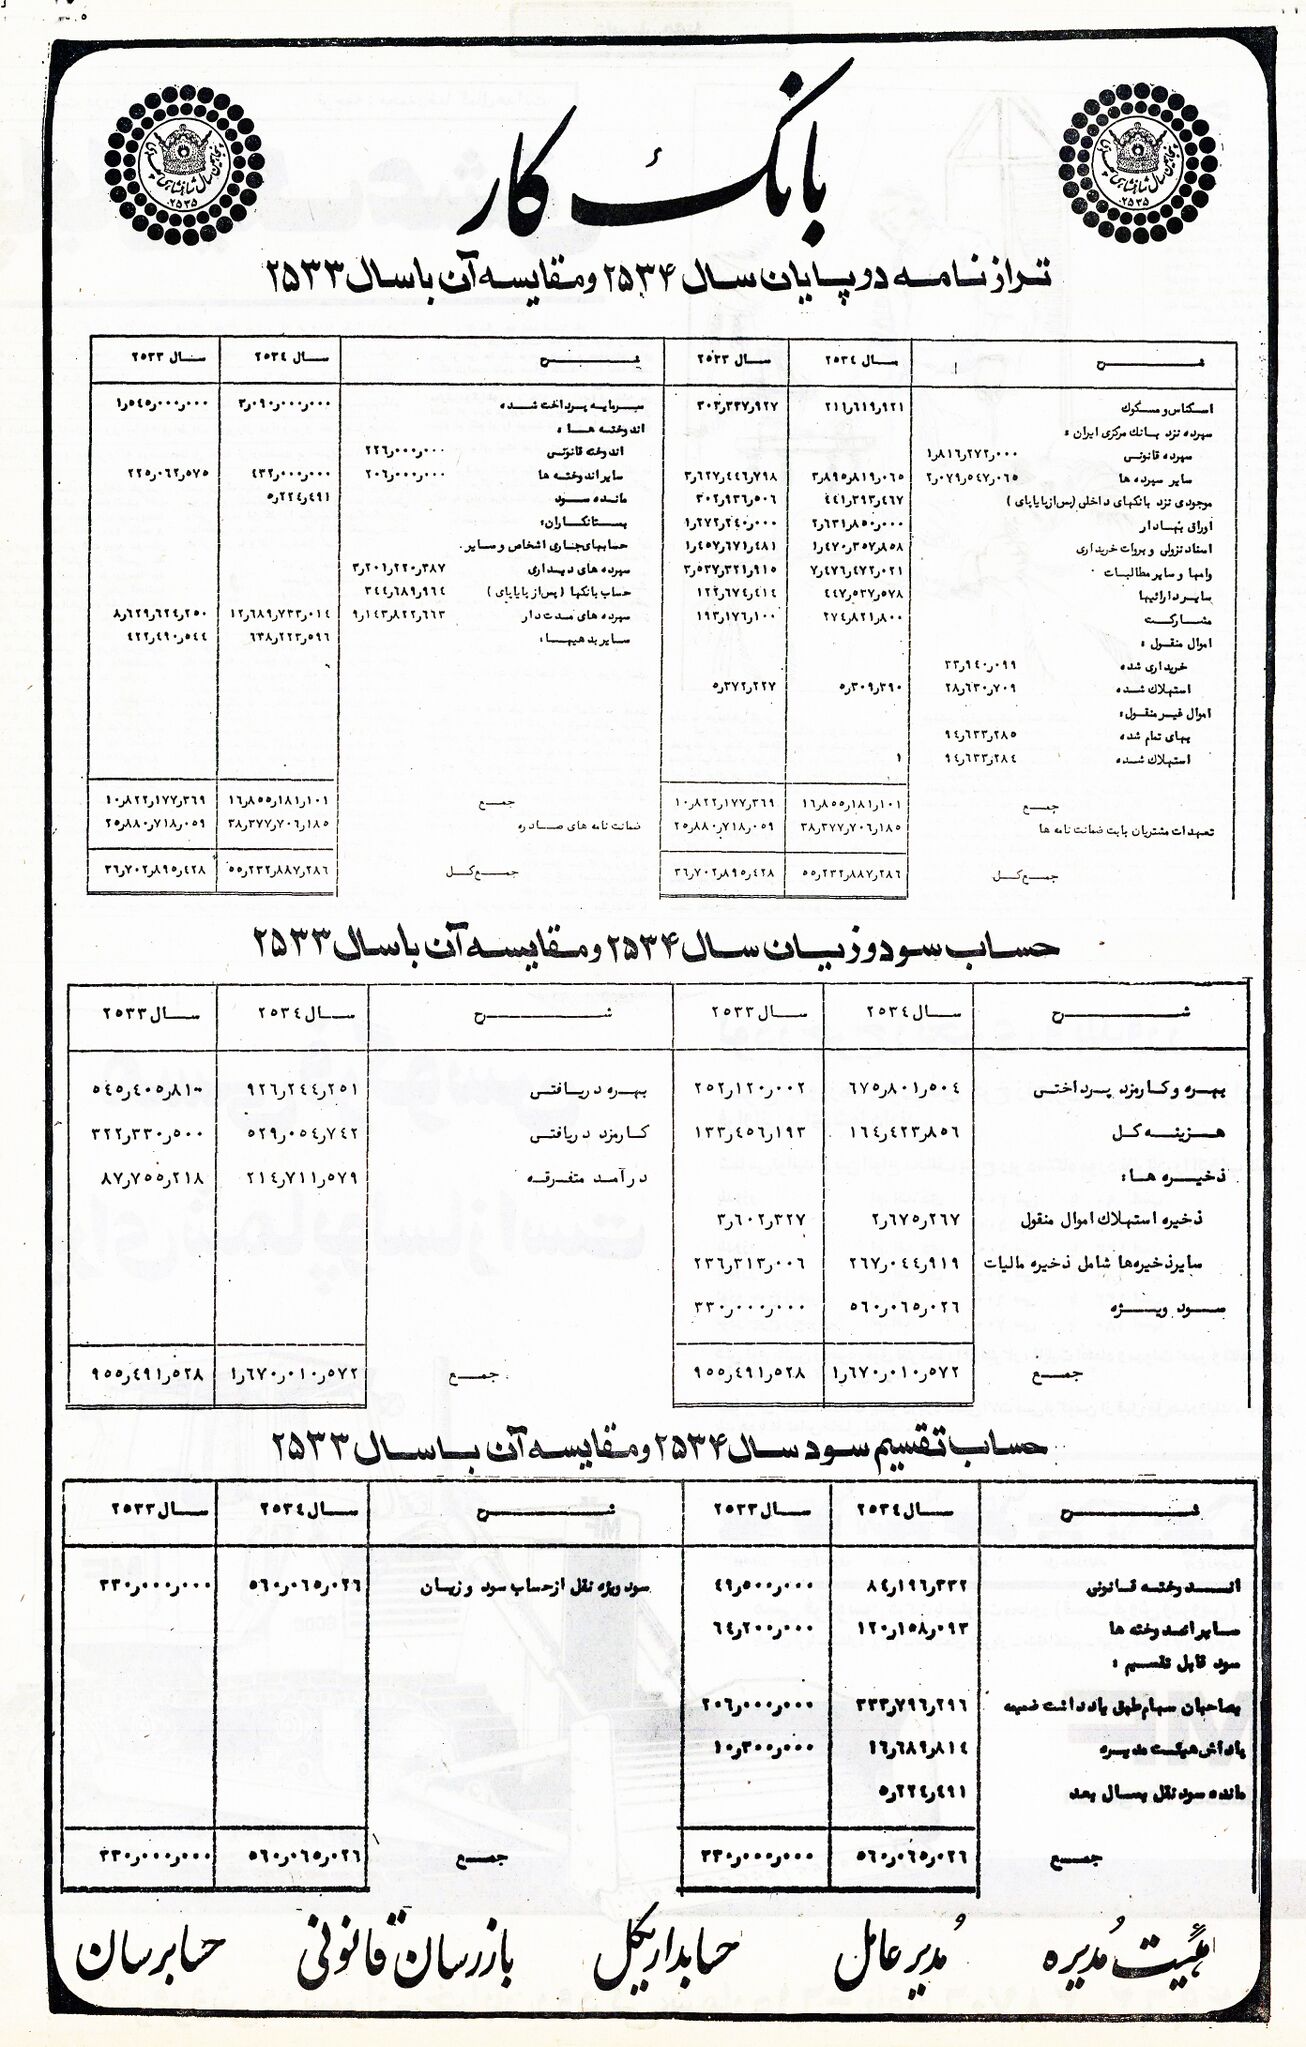 بانک کار
ترازنامه در پایان سال ۲۵۳۴ و مقایسه آن با سال ۲۵۳۳
شرح سال ۲۵۳۴ سال ۲۵۳۳ شرح سال ۲۵۳۴ سال ۲۵۳۳
اسکناس و مسکوک ۲۱۱ر۶۱۹ر۹۲۱ ۳۰۳ر۳۳۷ر۹۲۷ سرمایه پرداخت شده ۳ر۰۹۰ر۰۰۰ر۰۰۰ ۱ر۵۴۵ر۰۰۰ر۰۰۰
سپرده نزد بانک مرکزی ایران : اندوخته ها :
سپرده قانونی ۱ر۸۱۶ر۲۷۲ر۰۰۰ اندوخته قانونی ۲۲۶ر۰۰۰ر۰۰۰
سایر سپرده ها ۲ر۰۷۹ر۵۴۷ر۰۶۵ ۳ر۸۹۵ر۸۱۹ر۰۶۵ ۳ر۶۲۷ر۴۴۶ر۷۹۸ سایر اندوخته ها ۲۰۶ر۰۰۰ر۰۰۰ ۴۳۲ر۰۰۰ر۰۰۰ ۲۲۵ر۰۶۲ر۵۷۵
موجودی نزد بانکهای داخلی (پس از پایاپای) ۴۴۱ر۳۹۳ر۴۶۷ ۳۰۲ر۹۳۶ر۵۰۶ مانده سود ۵ر۲۲۴ر۴۹۱
اوراق بهادار ۲ر۶۳۱ر۸۵۰ر۰۰۰ ۱ر۲۷۲ر۲۴۰ر۰۰۰ بستانکاران:
اسناد نزولی و بروات خریداری ۱ر۴۷۰ر۳۵۷ر۸۵۸ ۱ر۴۵۷ر۶۷۱ر۴۸۱ حسابهای جاری اشخاص و سایر
وامها و سایر مطالبات ۷ر۴۷۶ر۴۷۲ر۰۲۱ ۳ر۵۳۷ر۳۲۱ر۹۱۵ سپرده های دیداری ۳ر۲۰۱ر۲۲۰ر۳۸۷
سایر دارائیها ۴۴۷ر۵۳۷ر۵۷۸ ۱۲۲ر۶۷۴ر۴۱۴ حساب بانکها (پس از پایاپای) ۳۴۴ر۶۸۹ر۹۶۴
مشارکت ۲۷۴ر۸۲۱ر۸۰۰ ۱۹۳ر۱۷۶ر۱۰۰ سپرده های مدت دار ۹ر۱۴۳ر۸۲۲ر۶۶۳ ۱۲ر۶۸۹ر۷۳۳ر۰۱۴ ۸ر۶۲۹ر۶۲۴ر۲۵۰
اموال منقول : سایر بدهیها : ۶۳۸ر۲۲۳ر۵۹۶ ۴۲۲ر۴۹۰ر۵۴۴
خریداری شده ۳۳ر۹۴۰ر۰۹۹
استهلاک شده ۲۸ر۶۳۰ر۷۰۹ ۵ر۳۰۹ر۳۹۰ ۵ر۳۷۲ر۲۲۷
اموال غیر منقول:
بهای تمام شده ۹۴ر۶۳۳ر۲۸۵
استهلاک شده ۹۴ر۶۳۳ر۲۸۴ ۱
جمع ۱۶ر۸۵۵ر۱۸۱ر۱۰۱ ۱۰ر۸۲۲ر۱۷۷ر۳۶۹ جمع ۱۶ر۸۵۵ر۱۸۱ر۱۰۱ ۱۰ر۸۲۲ر۱۷۷ر۳۶۹
تعهدات مشتریان بابت ضمانت نامه ها ۳۸ر۳۷۷ر۷۰۶ر۱۸۵ ۲۵ر۸۸۰ر۷۱۸ر۰۵۹ ضمانت نامه های صادره ۳۸ر۳۷۷ر۷۰۶ر۱۸۵ ۲۵ر۸۸۰ر۷۱۸ر۰۵۹
جمع کل ۵۵ر۲۳۲ر۸۸۷ر۲۸۶ ۳۶ر۷۰۲ر۸۹۵ر۴۲۸ جمع کل ۵۵ر۲۳۲ر۸۸۷ر۲۸۶ ۳۶ر۷۰۲ر۸۹۵ر۴۲۸
حساب سود و زیان سال ۲۵۳۴ و مقایسه آن با سال ۲۵۳۳
شرح سال ۲۵۳۴ سال ۲۵۳۳ شرح سال ۲۵۳۴ سال ۲۵۳۳
بهره و کارمزد پرداختی ۶۷۵ر۸۰۱ر۵۰۴ ۲۵۲ر۱۲۰ر۰۰۲ بهره دریافتی ۹۲۶ر۲۴۴ر۲۵۱ ۵۴۵ر۴۰۵ر۸۱۰
هزینه کل ۱۶۴ر۴۲۳ر۸۵۶ ۱۳۳ر۴۵۶ر۱۹۳ کارمزد دریافتی ۵۲۹ر۰۵۴ر۷۴۲ ۳۲۲ر۳۳۰ر۵۰۰
ذخیره ها : درآمد متفرقه ۲۱۴ر۷۱۱ر۵۷۹ ۸۷ر۷۵۵ر۲۱۸
ذخیره استهلاک اموال منقول ۲ر۶۷۵ر۲۶۷ ۳ر۶۰۲ر۳۲۷
سایر ذخیره ها شامل ذخیره مالیات ۲۶۷ر۰۴۴ر۹۱۹ ۲۳۶ر۳۱۳ر۰۰۶
سود ویژه ۵۶۰ر۰۶۵ر۰۲۶ ۳۳۰ر۰۰۰ر۰۰۰
جمع ۱ر۶۷۰ر۰۱۰ر۵۷۲ ۹۵۵ر۴۹۱ر۵۲۸ جمع ۱ر۶۷۰ر۰۱۰ر۵۷۲ ۹۵۵ر۴۹۱ر۵۲۸
حساب تقسیم سود سال ۲۵۳۴ و مقایسه آن با سال ۲۵۳۳
شرح سال ۲۵۳۴ سال ۲۵۳۳ شرح سال ۲۵۳۴ سال ۲۵۳۳
اندوخته قانونی ۸۴ر۱۹۶ر۳۳۲ ۴۹ر۵۰۰ر۰۰۰ سود ویژه نقل از حساب سود و زیان ۵۶۰ر۰۶۵ر۰۲۶ ۳۳۰ر۰۰۰ر۰۰۰
سایر اندوخته ها ۱۲۰ر۱۵۸ر۰۹۳ ۶۴ر۲۰۰ر۰۰۰
سود قابل تقسیم :
بصاحبان سهام طبق یادداشت ضمیمه ۳۳۳ر۷۹۶ر۲۹۶ ۲۰۶ر۰۰۰ر۰۰۰
پاداش هیئت مدیره ۱۶ر۶۸۹ر۸۱۴ ۱۰ر۳۰۰ر۰۰۰
مانده سود نقل بسال بعد ۵ر۲۲۴ر۴۹۱
جمع ۵۶۰ر۰۶۵ر۰۲۶ ۳۳۰ر۰۰۰ر۰۰۰ جمع ۵۶۰ر۰۶۵ر۰۲۶ ۳۳۰ر۰۰۰ر۰۰۰
هیئت مدیره مدیر عامل حسابداریکل بازرسان قانونی حسابرسان